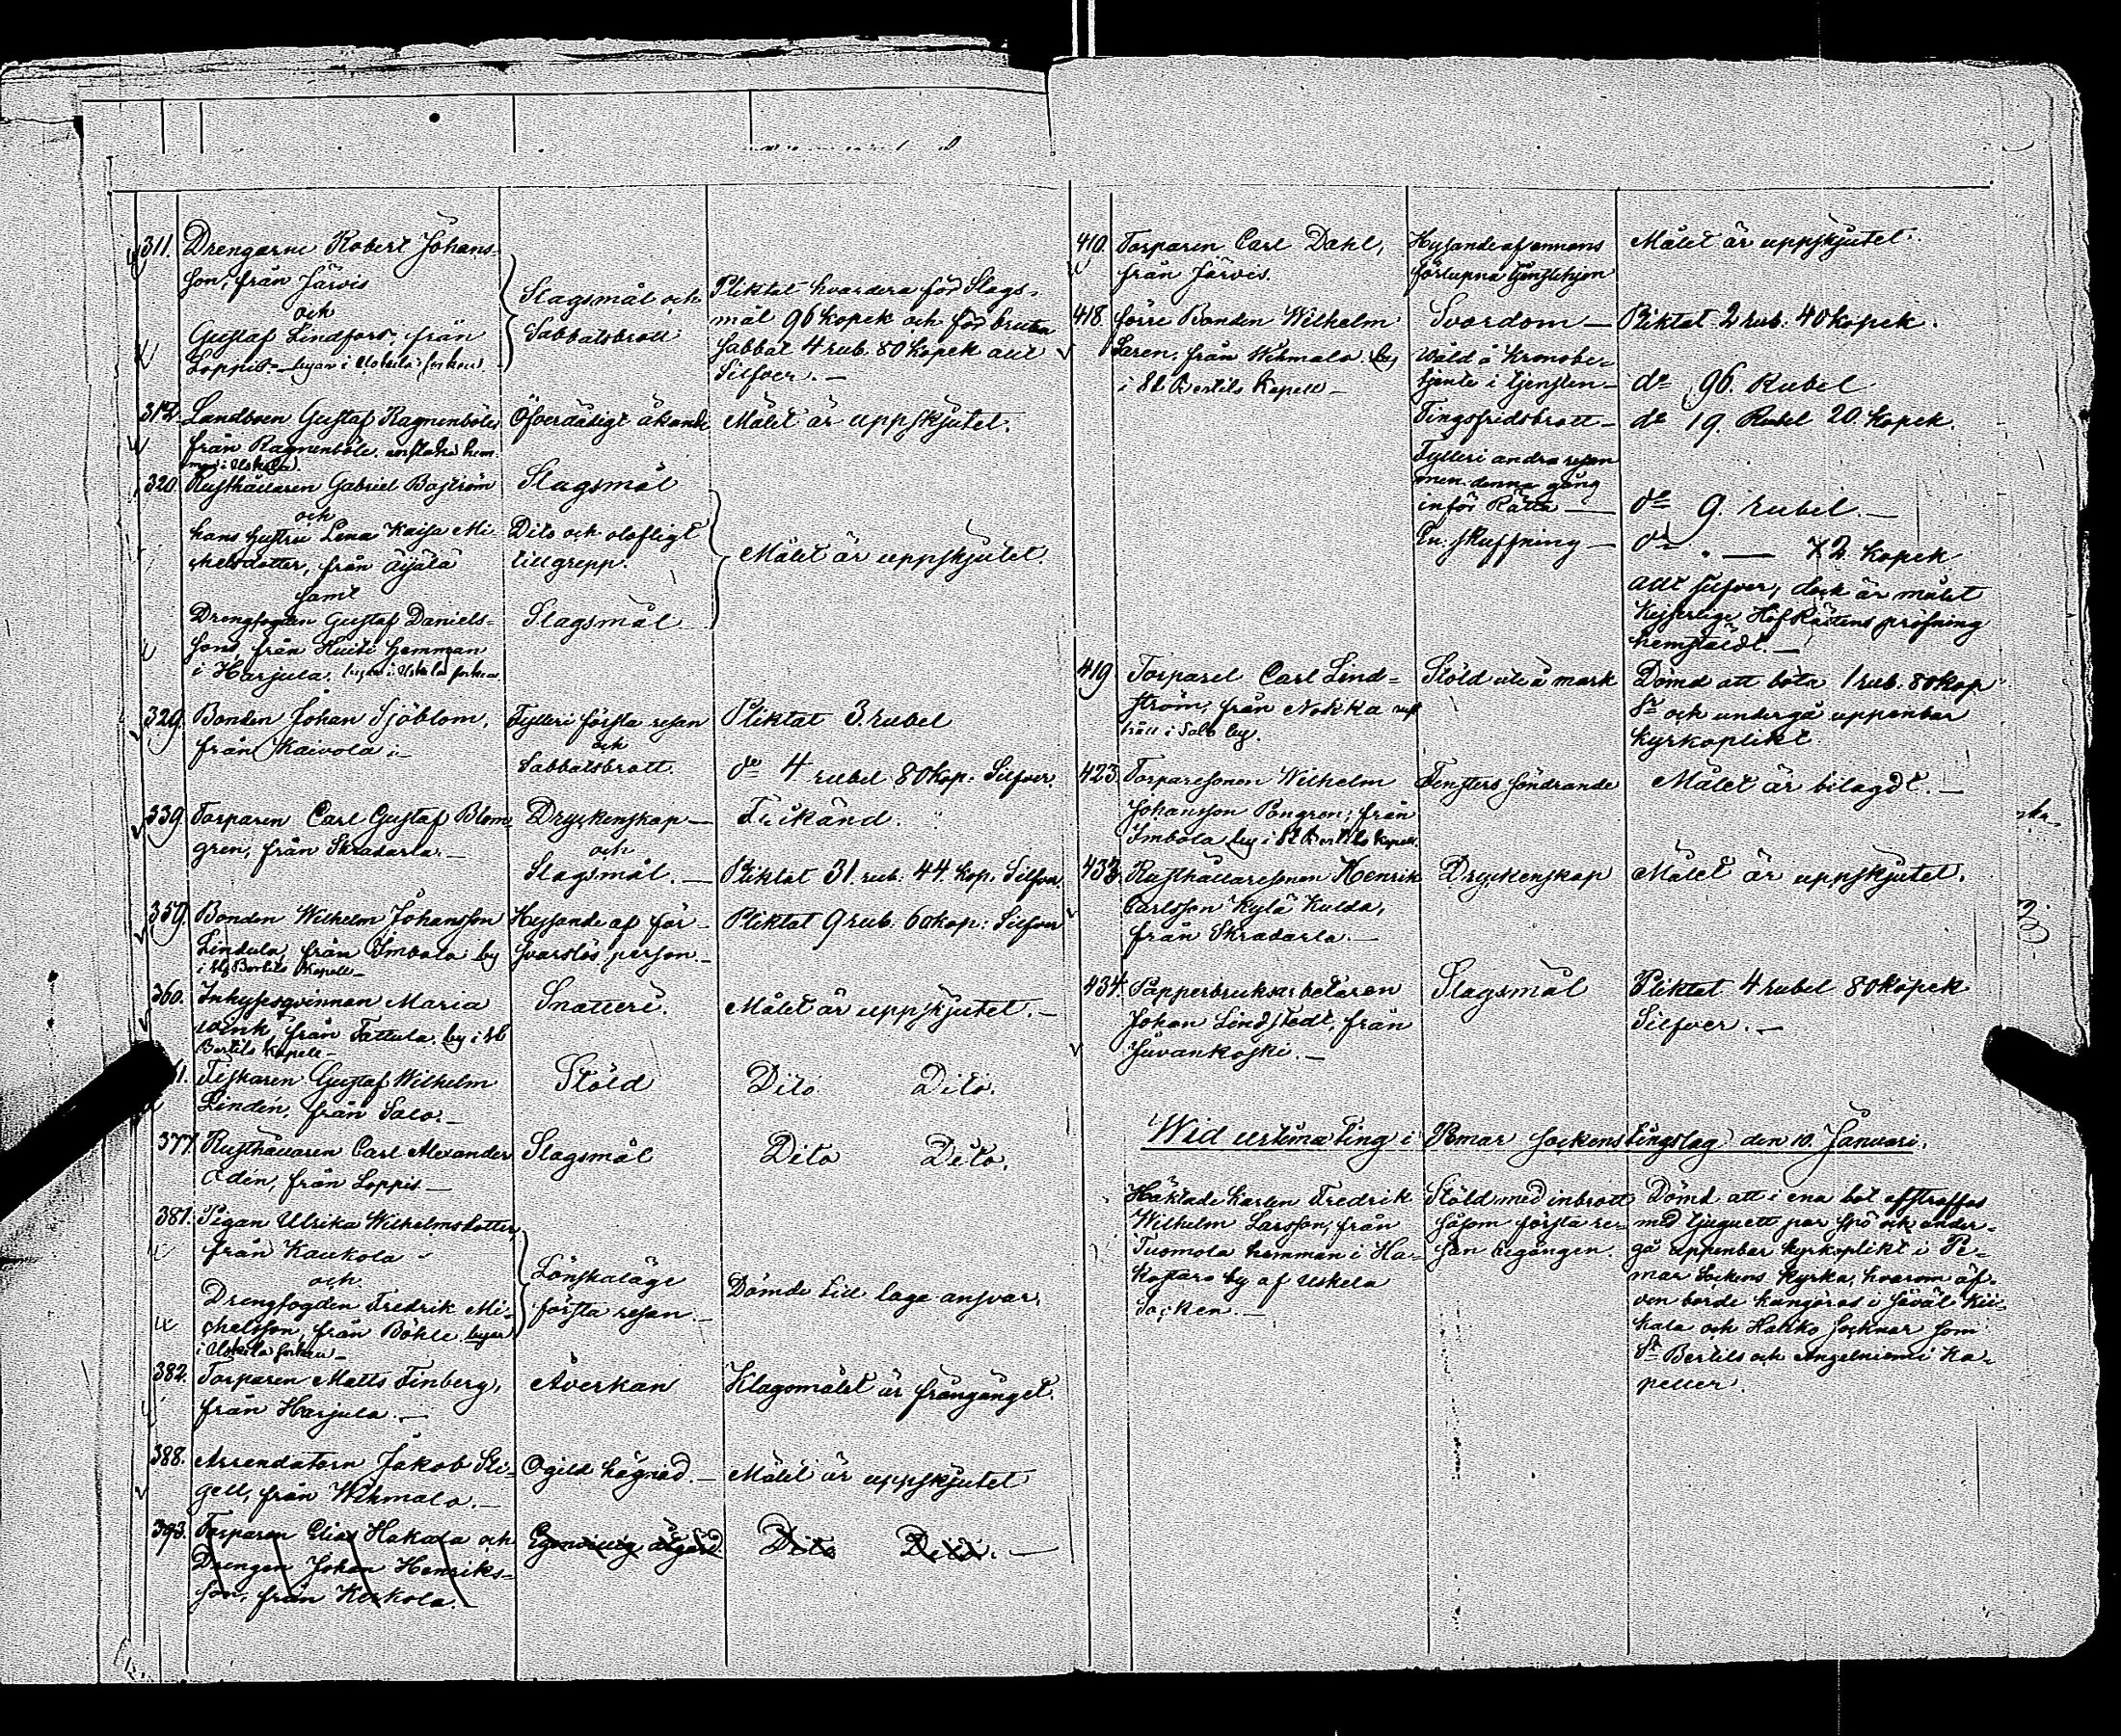 311. Drengarne Robert Johans-
son, från Järvis
och
Gustaf Lindfors, från
Loppis. byar i Uskela socken
Slagsmål och
Sabbatsbrott
Pliktat hvardera för Slags-
mål 96 kopek och för bruten
Sabbat 4 rub. 80 kopek allt
Silfver.
Landboen Gustaf Ragnenböle
från Ragnenböle
Öfverdådigt åkande
Målet är uppskjutet.
320 Rusthållaren Gabriel Boström
och
hans hustru Lena Kaisa Mi-
chelsdotter, från Äijälä
samt
Drengfogden Gustaf Daniels-
son, från Huiti Hemman
i Harjula. byar i Uskela socken
Slagsmål
Dito och olofligt
tillgrepp.
Slagsmål
Målet är uppskjutet.
329. Bonden Johan Sjöblom,
från Kaivola
Fylleri första resan
och
Sabbatsbrott.
Pliktat 3. rubel
do 4 rubel 80 kop: Silfver.
339 Torparen Carl Gustaf Blom-
gren, från Skradarla.
Dryckenskap
och
Slagsmål.
Frikänd.
Pliktat 31. rub. 44. kop. Silfver
359. Bonden Wilhelm Johansson
Lindula, från Imbola by
i St Bertils Kapell
Hysande af för-
svarslös person.
Pliktat 9 rub. 60 kop: Silfver
360. Inhysesqvinnan Maria
Wink, från Tattula. by i St
Bertils Kapell
Snatteri.
Målet är uppskjutet.
61. Fiskaren Gustaf Wilhelm
Lindén, från Salo.
Stöld
Dito Dito.
377. Rusthållaren Carl Alexander
Edén, från Loppis
Slagsmål
Dito Dito.
381. Pigan Ulrika Wilhelmsdotter
från Kaukola
och
Drengfogden Fredrik Mi-
chelsson, från Böhle byar
i Uskela socken
Lönskaläge
första resan.
Dömde till laga ansvar.
382. Torparen Matts Finberg,
från Harjula.
Åverkan
Klagomålet är frångånget.
388. Arrendatorn Jakob Sti-
gell, från Wihmalo.
Ogild hägnad.
Målet är uppskjutet
393. Torparen Elias Hakala och
Drengen Johan Henriks-
son, från Kerkola.
Egenvillig åtgärd
Dito Dito.
410. Torparen Carl Dahl,
från Järvis.
Hysande af annans
förlupna tjenstehjon
Målet är uppskjutet.
418. förre Bonden Wilhelm
Laren, från Wihmalo. by
i St Bertils Kapell
Svordom
Pliktat 2 rub. 40 kopek.
våld å Kronobe-
tjente i tjensten
do 96. Rubel
Tingsfridsbrott
do 19. Rubel 20. kopek.
Fylleri andra resan
men denna gång
inför Rätta
do 9. rubel.
En: skuffning
do . 72 kopek
allt silfver, dock är målet
Kejserlige HofRättens pröfning
hemstäldt.
419 Torparen Carl Lind-
ström, från Nokka rust
håll i Salo by.
Stöld ute å mark
Dömd att böta 1 rub. 80 kop
Sr och undergå uppenbar
kyrkoplikt.
423. Torparesonen Wilhelm
Johansson Pongren, från
Imbola by i St Bertils Kapell.
Fensters söndrande
Målet är bilagdt.
433. Rusthållaresonen Henrik
Carlsson Kylä Kulda,
från Skradarla.
Dryckenskap
Målet är uppskjutet.
434. Papperbruksarbetaren
Johan Lindstedt, från
Juvankoski.
Slagsmål
Pliktat 4 rubel 80 kopek
Silfver.
Wid urtima Ting i Pemar sockens tingslag den 10. Januari.
Häktade karlen Fredrik
Wilhelm Larsson, från
Tuomola hemman i Ha-
kostaro by af Uskela
Socken.
Stöld med inbrott
såsom första re-
san begången.
Dömd att i ena bot afstraffas
med tjuguett par spö och under-
gå uppenbar kyrkoplikt i Pe-
mar Sockens kyrka, hvarom äf-
ven borde kungöras i såväl Kii-
kala och Haliko socknar som
St Bertils och Angelniemi Ka-
peller.